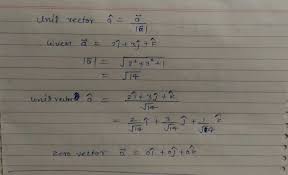 Unit vector â = a⃗ / |a⃗|
Given a⃗ = 2î + 3ĵ + k̂
|a⃗| = √(2² + 3² + 1)
= √14
Unit vector â = (2î + 3ĵ + k̂) / √14
= 2/√14 î + 3/√14 ĵ + 1/√14 k̂
Zero vector a⃗ = 0î + 0ĵ + 0k̂